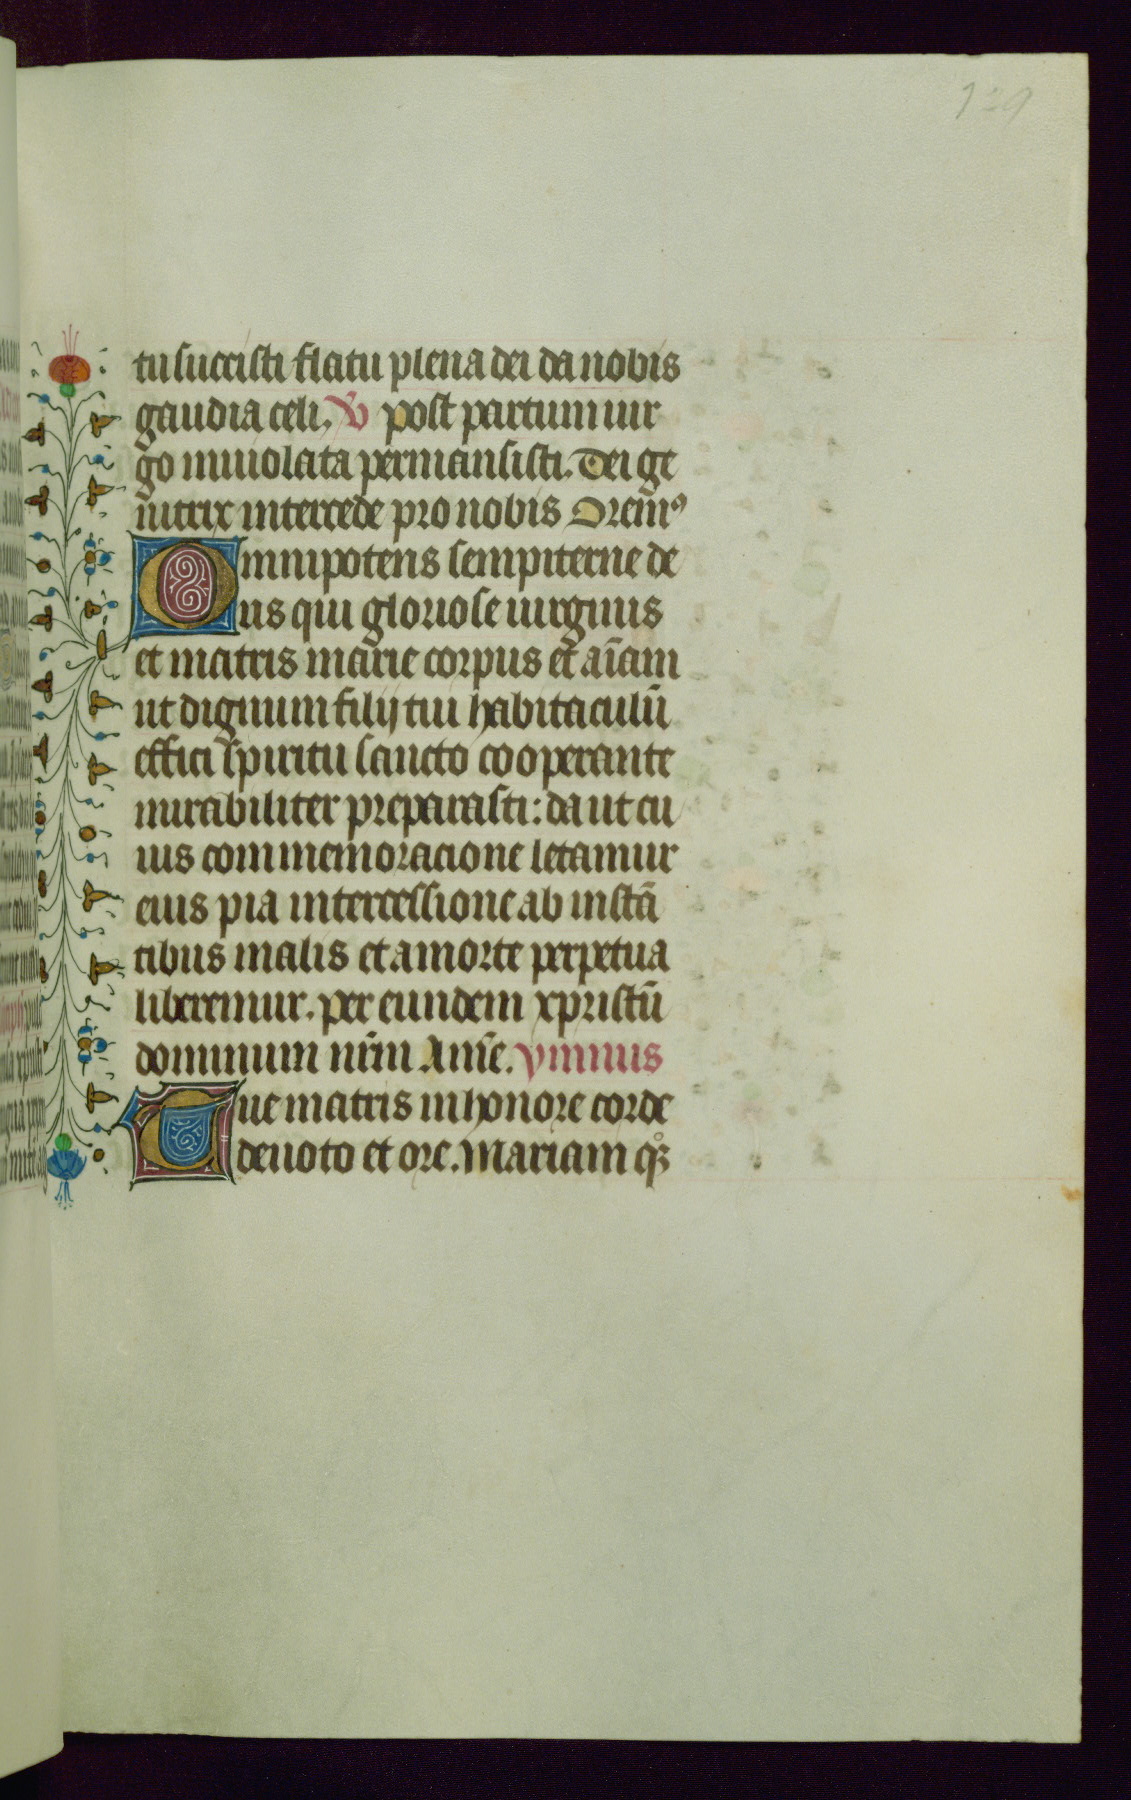 129
tu succisti flatu plena dei da nobis
gaudia celi. V post partum uir
go inuiolata permansisti. Dei ge
nitrix intercede pro nobis Orem⁹
Omnipotens sempiterne de
us qui gloriose uirginis
et matris marie corpus et aīam
ut dignum filij tui habitaculū
effici spiritu sancto cooperante
mirabiliter preparasti: da ut cu
ius commemoracione letamur
eius pia intercessione ab instā
tibus malis et a morte perpetua
liberemur. per eundem xpristū
dominum nr̄m Amē. ymnus
Aue matris in honore corde
deuoto et ore. Mariam